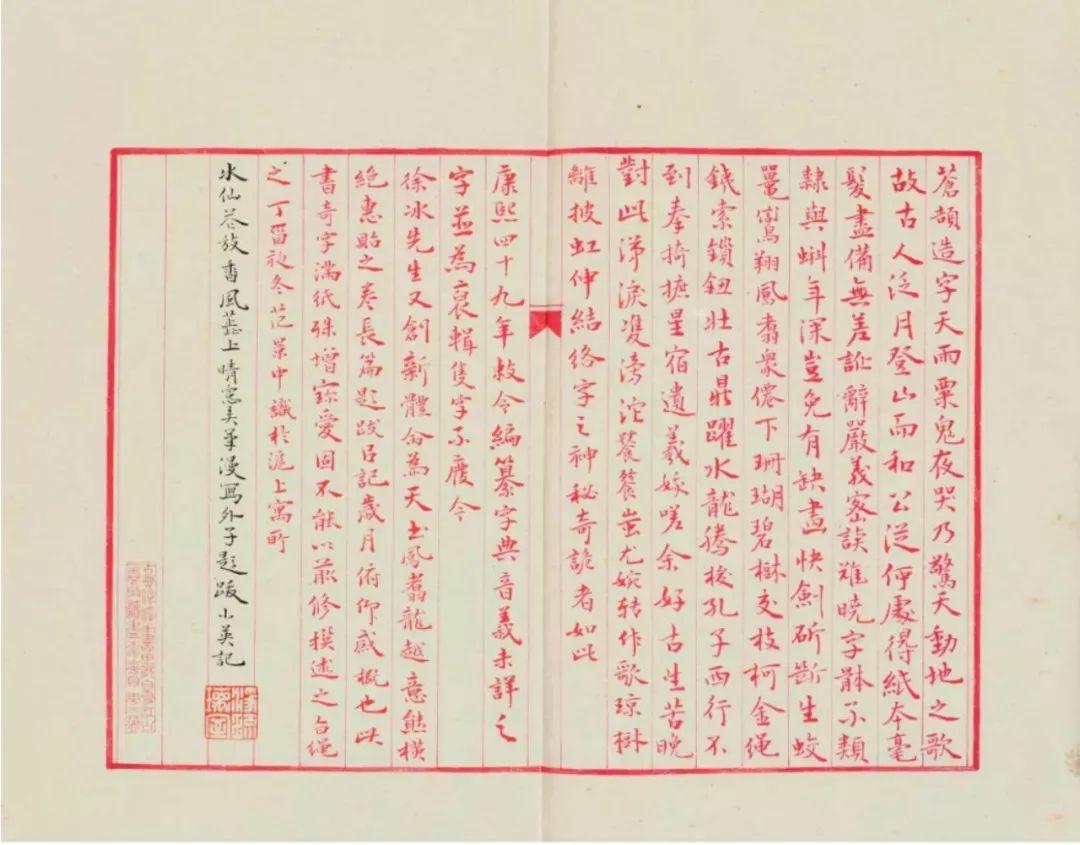 蒼頡造字天雨粟鬼夜哭乃驚天動地之歌
故古人泛月登山而和公從何處得紙本毫
髮盡備無差訛辭嚴義密讀難曉字體不類
隸與蝌年深豈免有缺畫快劍斫斷生蛟
鼉鸞翔鳳翥衆僊下珊瑚碧樹交枝柯金繩
鐵索鎖鈕壯古鼎躍水龍騰梭孔子西行不
到奉掎摭星宿遺羲娥嗟余好古生苦晚
對此涕淚雙滂沱饕餮蚩尤婉转作歌琼樹
離披虹伸結絡字之神秘奇詭者如此
康熙四十九年敕令編纂字典音義未詳之
字並為裒輯隻字不廢今
徐冰先生又創新體命為天书鳳翥龍趠意態横
絕惠貽之奏長篇題跋以記歲月俯仰感慨也此
書奇字滿紙殊增珍愛固不能以前修摸述之旨繩
之丁酉秋冬范景中識於滬上寓所
水仙花放香風 上晴窗 筆漫寫外子題跋小英記